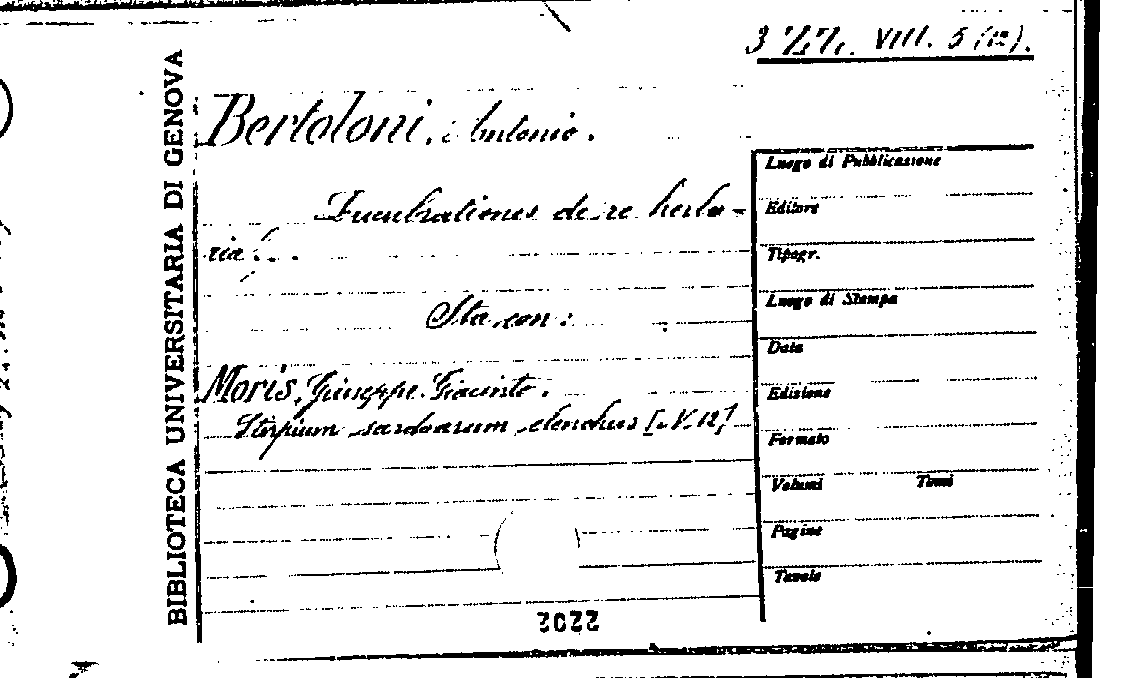 3 ZZ. VIII. 5 (12).
BIBLIOTECA UNIVERSITARIA DI GENOVA
Bertoloni, Antonio.
Lucubrationes de re herba-
ria...
Sta con:
Moris, Giuseppe Giacinto.
Stirpium sardoarum elenchus [N. 12]
Luogo di Pubblicazione
Editore
Tipogr.
Luogo di Stampa
Data
Edizione
Formato
Volumi Tomi
Pagine
Tavole
2202